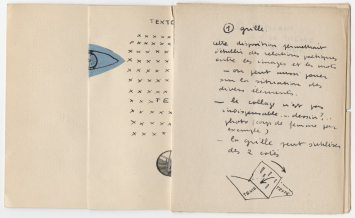 TEXTE
x x x x x x
x x x x x x
x x x x x
x x x x x
x x x x x x
x x TE
x x x x x
x x x x x x
x x x x
① grille
cette disposition permettrait
d'établir des relations poétiques
entre les images et les mots
— on peut aussi jouer
sur la situation des
divers éléments.
— le collage n'est pas
indispensable .. dessin? ..
photo (corps de femme par
exemple)
— la grille peut s'utiliser
des 2 cotés
TEXTE
TEXTE